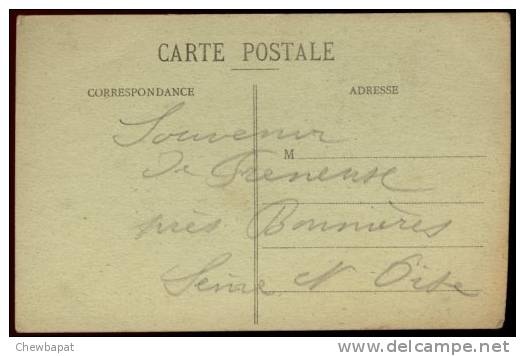 CARTE POSTALE
CORRESPONDANCE
ADRESSE
M
Souvenir
de Freneuse
près Bonnières
Seine et Oise
Chewbapat
www.delcampe.net